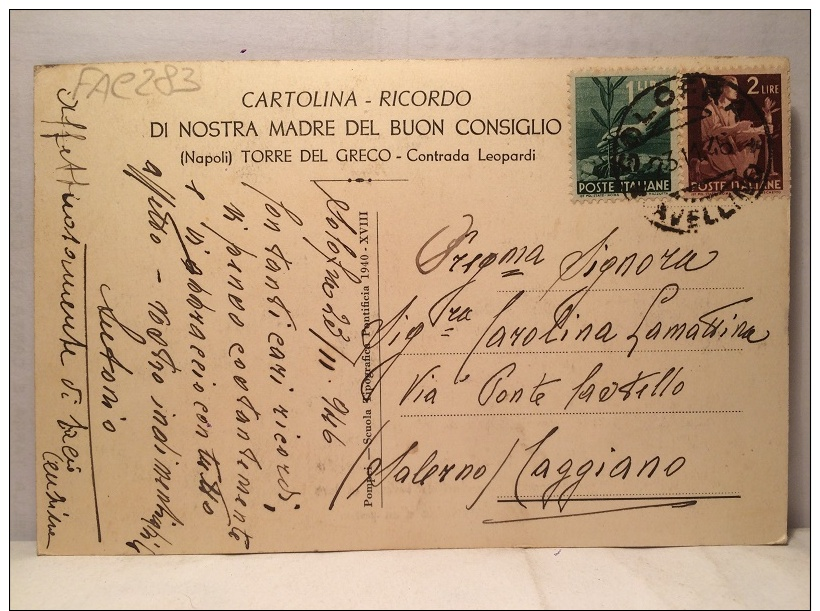 FAC283
CARTOLINA - RICORDO
DI NOSTRA MADRE DEL BUON CONSIGLIO
(Napoli) TORRE DEL GRECO - Contrada Leopardi
1 LIRE
POSTE ITALIANE
2 LIRE
POSTE ITALIANE
SOLOFRA
AVELLINO
Solofra 23/11.946
Con tanti cari ricordi,
vi penso costantemente
e vi abbraccio con tutto
affetto - vostro
Antonio
Affettuosamente vi bacio
Pompei - Scuola Tipografica Pontificia 1940 - XVIII
Preg.ma Signora
Sig.ra Carolina Lamattina
Via Ponte Castello
(Salerno) Caggiano